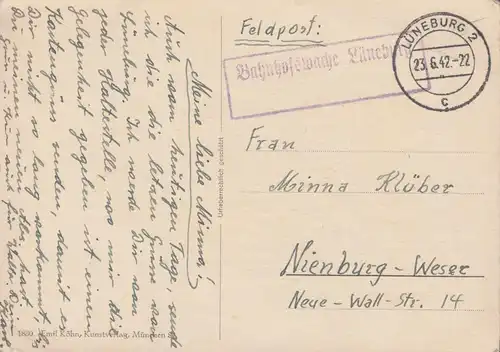 Meine liebe Minna!
Auch vom heutigen Tage, sende
ich dir die letzen Grüsse von
Lüneburg. Ich werde Dir von
jeder Haltestelle, wo mir die
Gelegenheit gegeben ist einen
Kartengruss senden, damit es
Dir nicht so lang vorkommt,
Dir meinen
Gruss u. Kuss auch für
1650 Emil Köhn, Kunstverlag, München
Urheberrechtlich geschützt
Feldpost:
Bahnhofswache Lüneburg
LÜNEBURG 2
23.6.42.-22
c
Frau
Minna Klüber
Nienburg-Weser
Neue-Wall-Str. 14